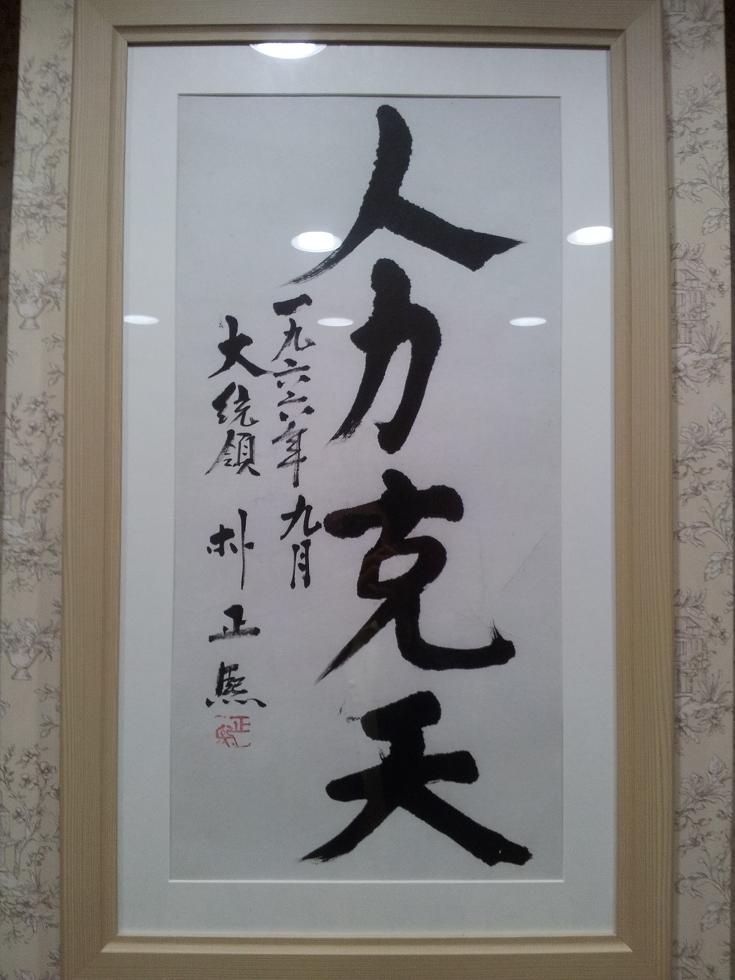 人力克天
一九六六年 九月
大統領 朴正熙